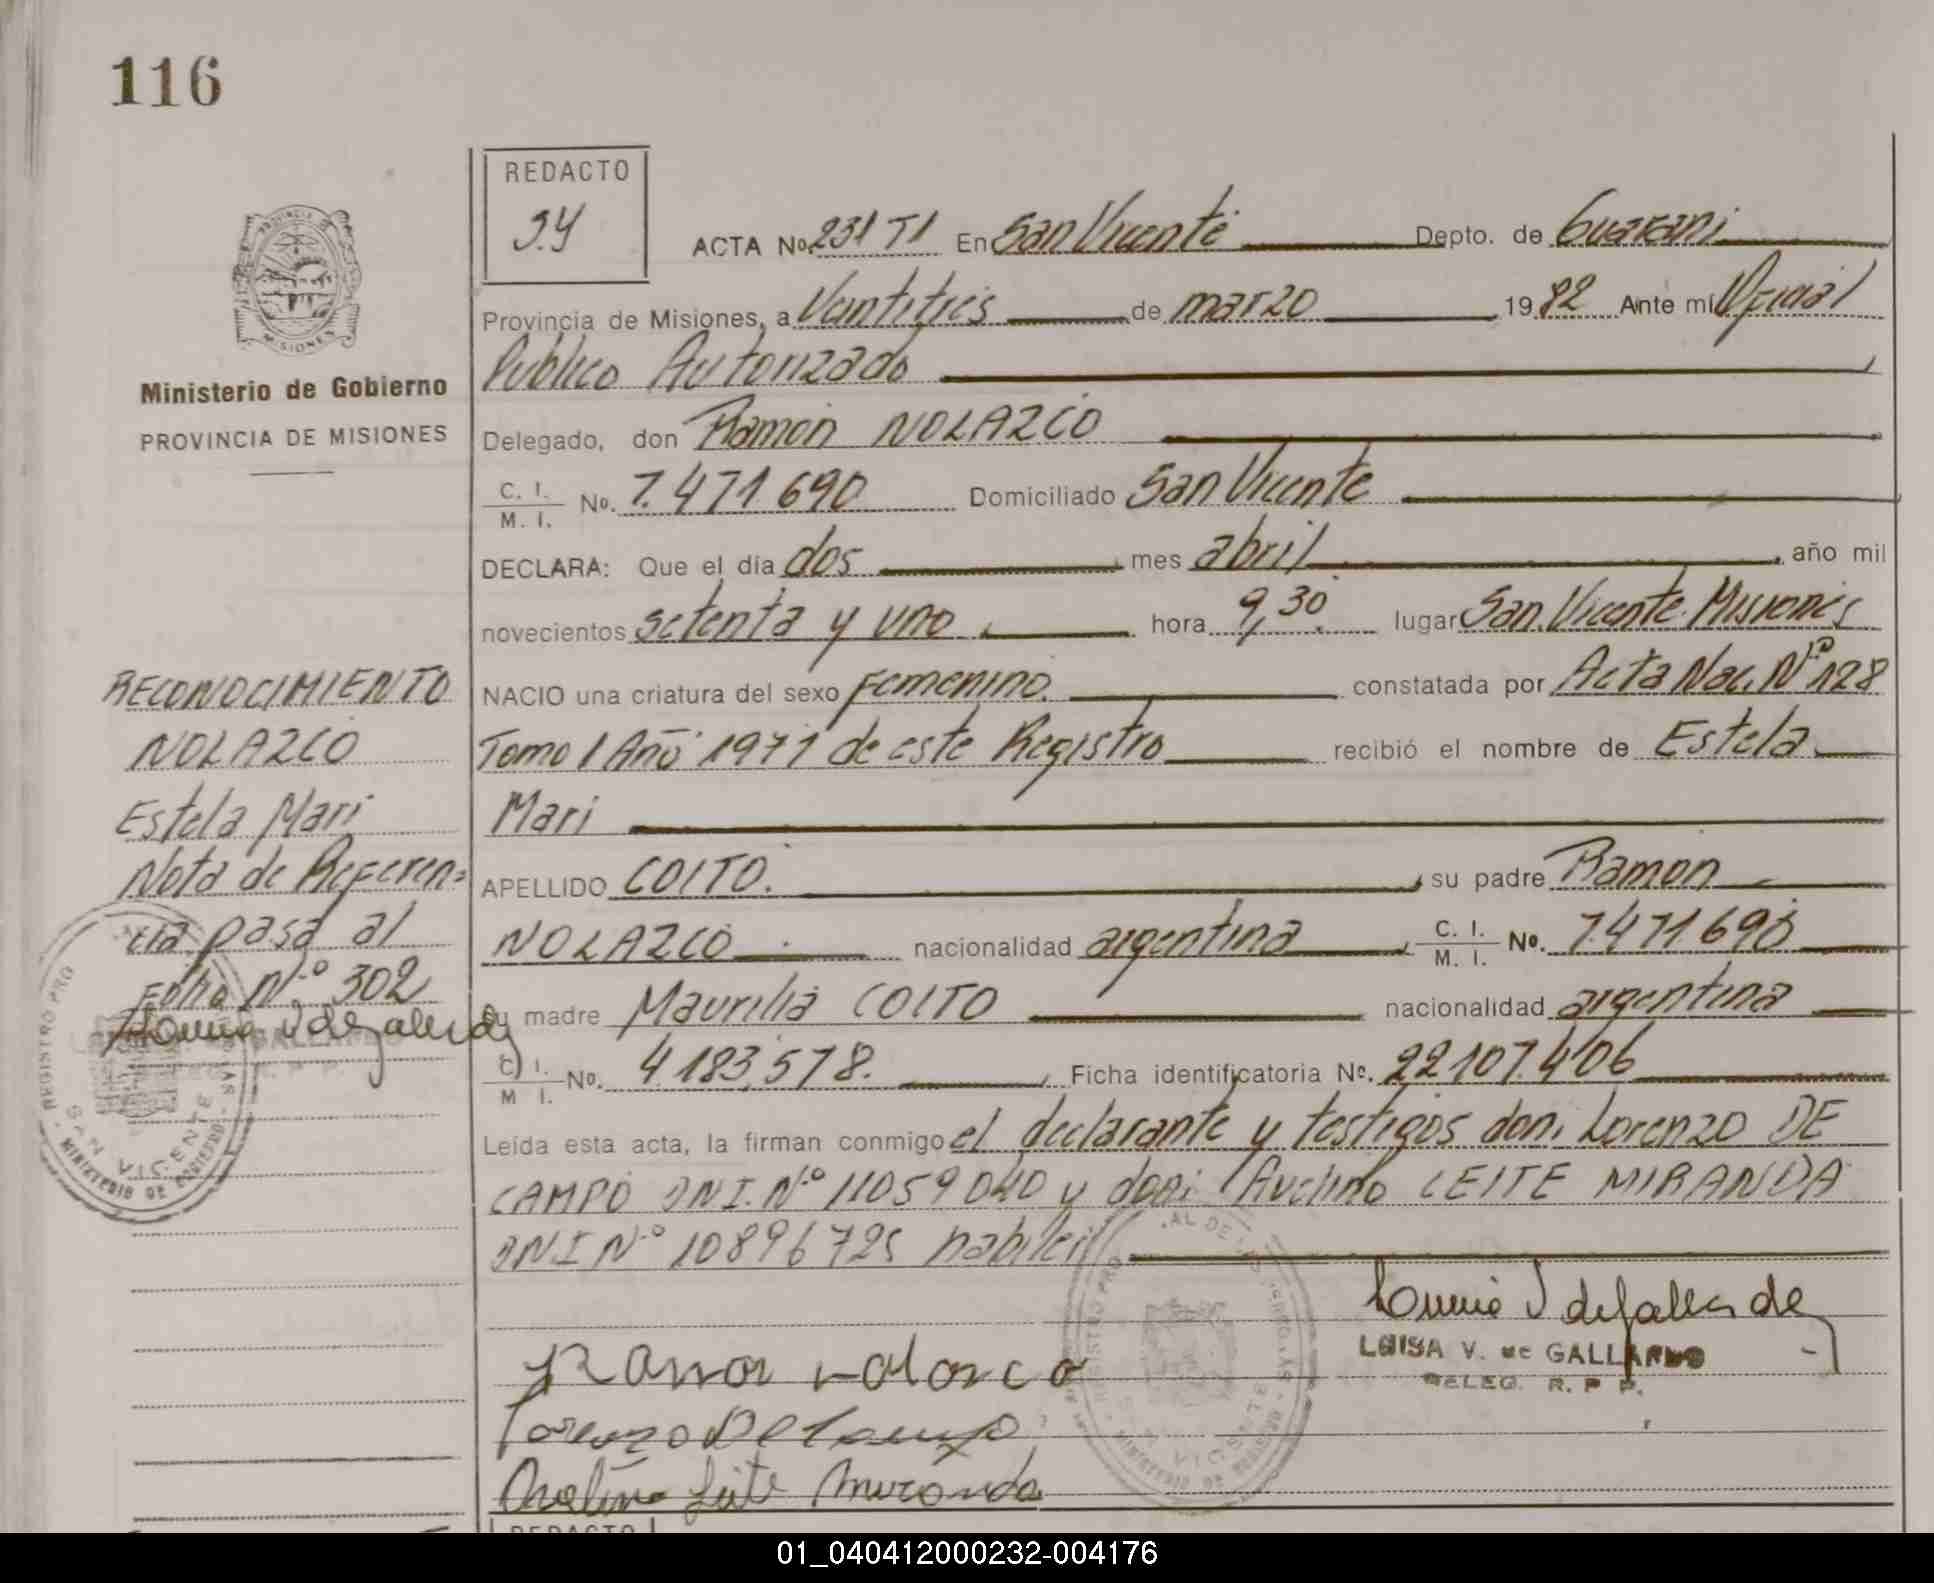 116
REDACTO
J.Y
ACTA No. 231 T1 En San Vicente Depto. de Guarani
Provincia de Misiones, a Veintitres de marzo 1982 Ante mi Oficial
Publico Autorizado
Delegado, don Ramon NOLAZCO
C. I.
M. I. No. 7.471.690 Domiciliado San Vicente
DECLARA: Que el día dos mes abril año mil
novecientos setenta y uno hora 9,30 lugar San Vicente Misiones
NACIO una criatura del sexo Femenino. constatada por Acta Nac. Nº 128
Tomo 1 Año 1971 de este Registro recibió el nombre de Estela
Mari
APELLIDO COITO. su padre Ramon
NOLAZCO nacionalidad argentina C. I.
M. I. No. 7.471.690
su madre Maurilia COITO nacionalidad argentina
C. I.
M. I. No. 4.183.578. Ficha identificatoria No. 22.107.406
Leída esta acta, la firman conmigo el declarante y testigos don: Lorenzo DE
CAMPO DNI. Nº 11059040 y don: Avelino LEITE MIRANDA
DNI Nº 10896725
Ministerio de Gobierno
PROVINCIA DE MISIONES
RECONOCIMIENTO
NOLAZCO
Estela Mari
Nota de Referen=
cia pasa al
Folio Nº 302
LUISA V. de GALLARDO
DELEG. R. P. P.
SAN VICENTE
MINISTERIO DE GOBIERNO
REDACTO
01_040412000232-004176